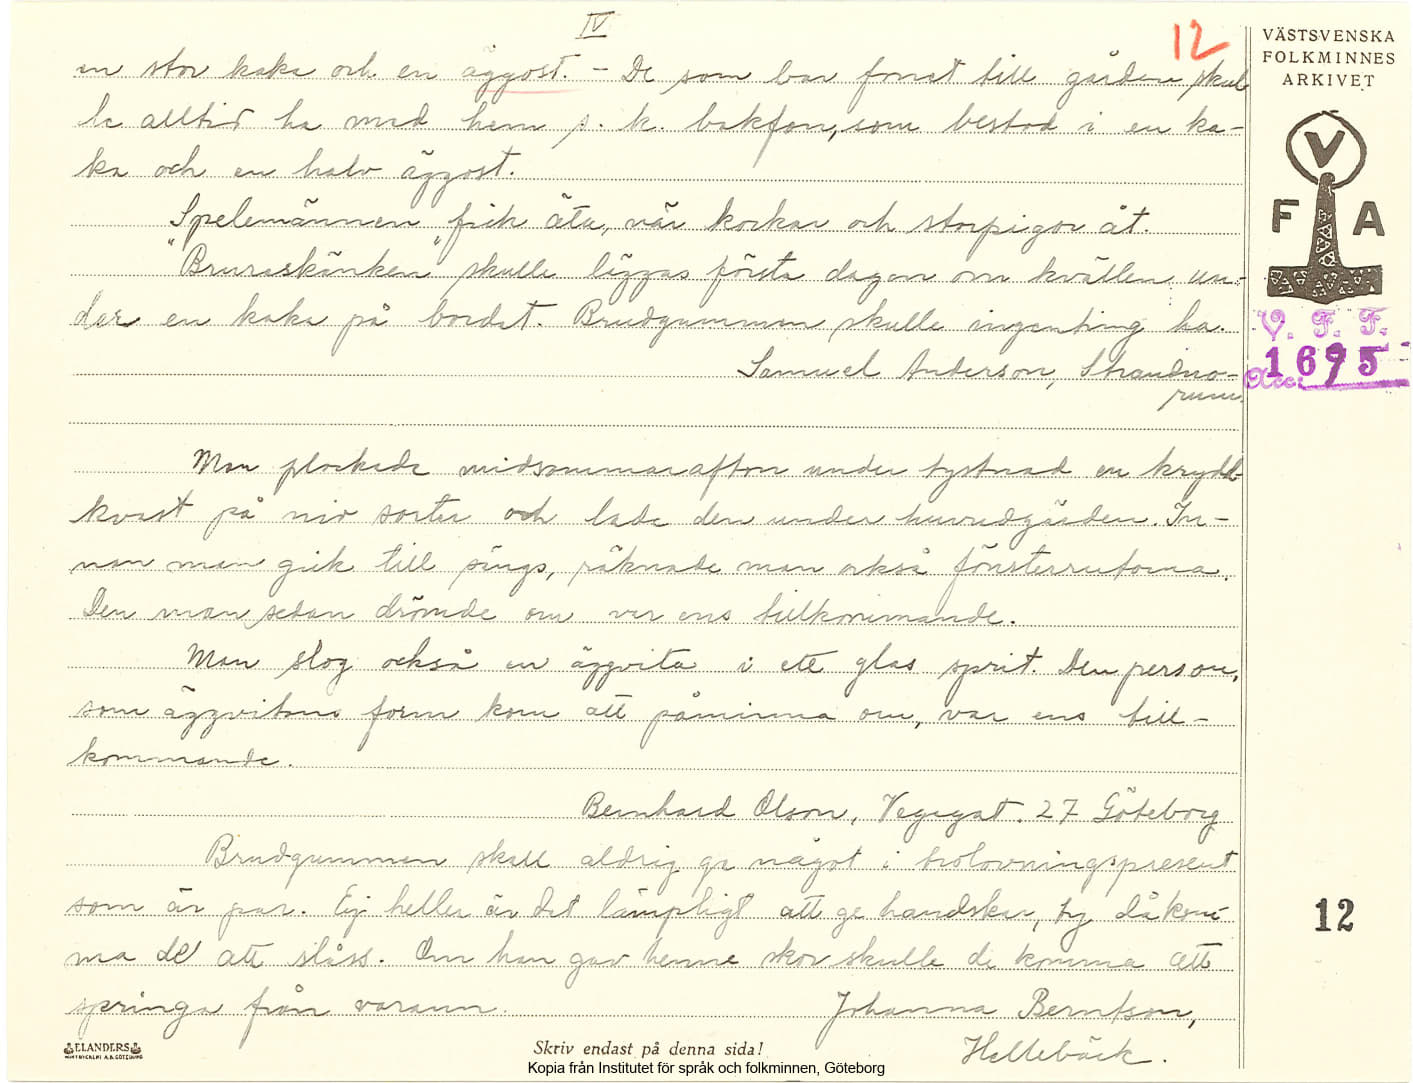 IV
12
VÄSTSVENSKA
FOLKMINNES
ARKIVET
V
F A
V. F. F.
1695
Acc:
en stor kaka och en äggost. – De som bar fonat till gården skul
le alltid ha med hem s. k. bakfon, som bestod i en ka-
ka och en halv äggost.
Spelemännen fick äta, när kockar och storpigor åt.
"Bruraskänken" skulle läggas första dagen om kvällen un-
der en kaka på bordet. Brudgummen skulle ingenting ha.
Samuel Anderson, Strandno-
rum.
Man plockade midsommarafton under tystnad en krydd
kvast på nio sorter och lade den under huvudgärden. In-
nan man gick till sängs, räknade man också fönsterrutorna.
Den man sedan drömde om var ens tillkommande.
Man slog också en äggvita i ett glas sprit. Den person,
som äggvitans form kom att påminna om, var ens till-
kommande.
Bernhard Olson, Vegagat. 27 Göteborg
Brudgummen skall aldrig ge något i trolovningspresent
som är par. Ej heller är det lämpligt att ge handskar, ty då kom-
ma de att slåss. Om han gav henne skor skulle de komma att
springa från varann.
Johanna Berntson,
Hellebäck.
12
ELANDERS
Skriv endast på denna sida!
Kopia från Institutet för språk och folkminnen, Göteborg